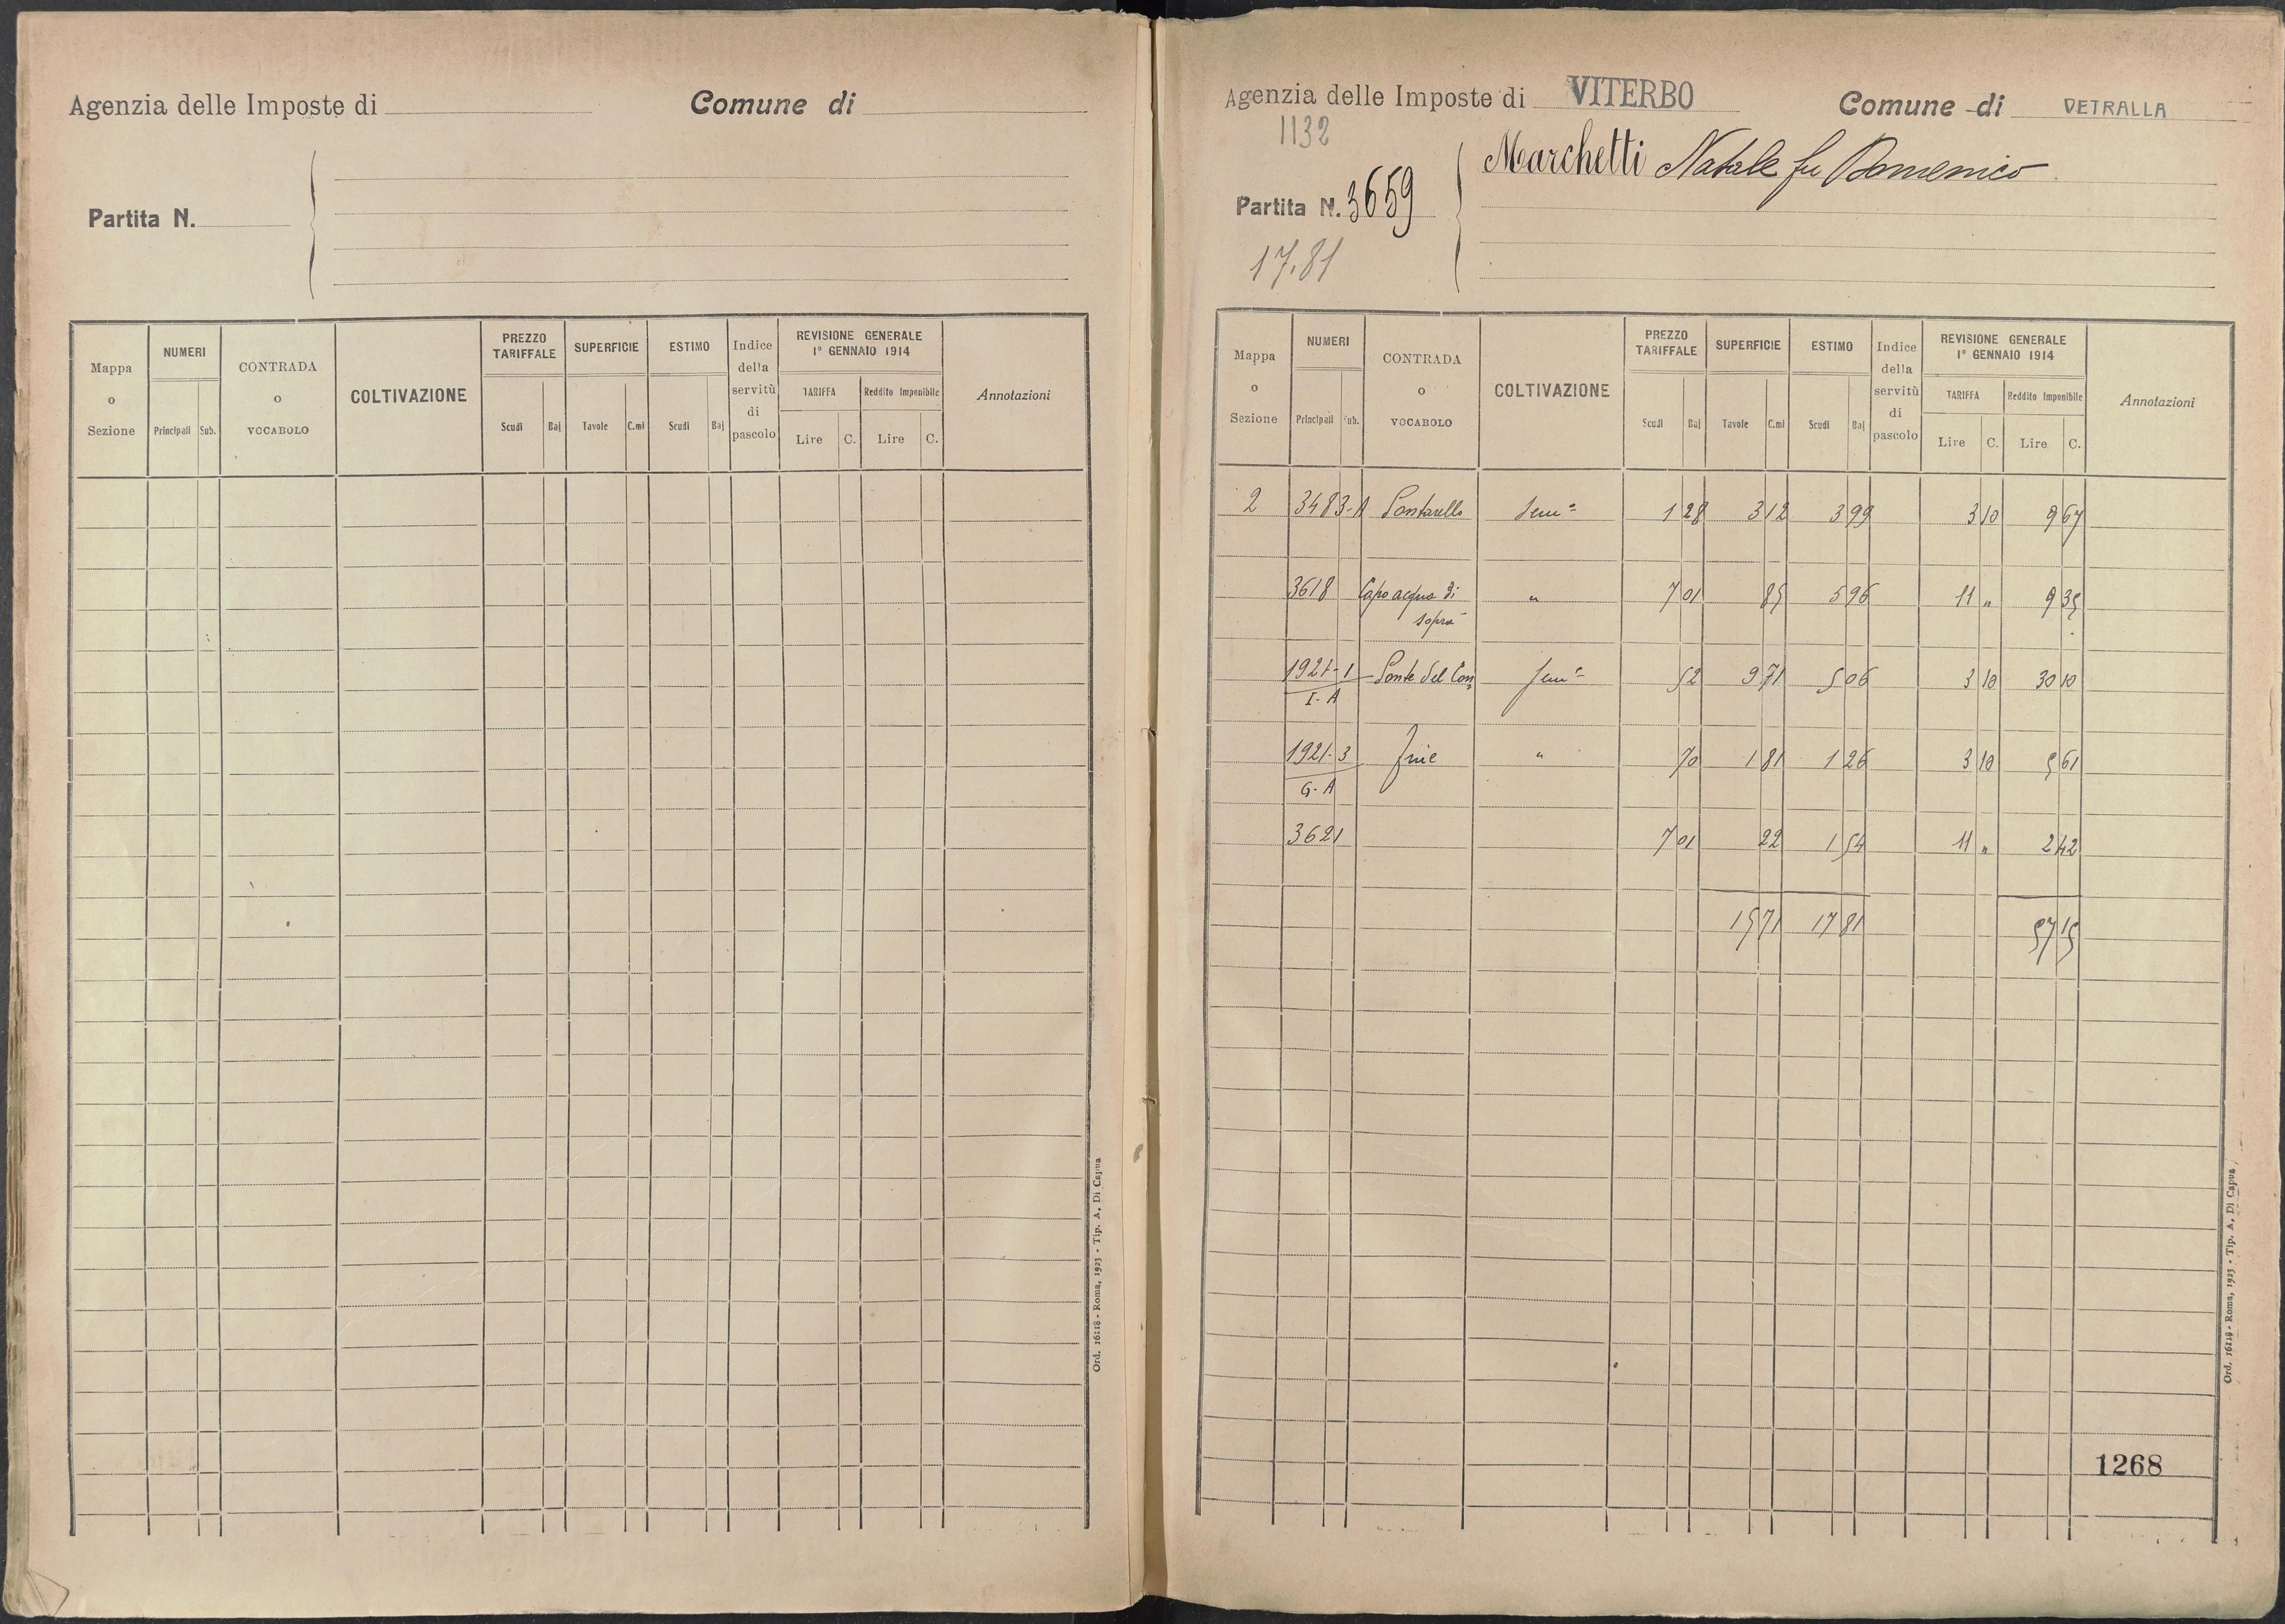 Agenzia delle Imposte di
Comune di
Partita N.
Mappa o Sezione
NUMERI
Principali Sub.
CONTRADA o VOCABOLO
COLTIVAZIONE
PREZZO TARIFFALE
Scudi Baj
SUPERFICIE
Tavole C.mi
ESTIMO
Scudi Baj
Indice della servitù di pascolo
REVISIONE GENERALE
1° GENNAIO 1914
TARIFFA
Lire C.
Reddito Imponibile
Lire C.
Annotazioni
Ord. 16118 - Roma, 1923 - Tip. A. Di Capua
Agenzia delle Imposte di VITERBO
Comune di VETRALLA
1132
Marchetti Natale fu Domenico
Partita N. 3659
17.81
Mappa o Sezione
NUMERI
Principali Sub.
CONTRADA o VOCABOLO
COLTIVAZIONE
PREZZO TARIFFALE
Scudi Baj
SUPERFICIE
Tavole C.mi
ESTIMO
Scudi Baj
Indice della servitù di pascolo
REVISIONE GENERALE
1° GENNAIO 1914
TARIFFA
Lire C.
Reddito Imponibile
Lire C.
Annotazioni
2 3483-A Pontarello Semo 1 28 3 12 3 99 3 10 9 67
3618 Capo acqua di sopra " 7 01 85 5 96 11 " 9 35
1921-1 Ponte del Con Semo 52 9 71 5 06 3 10 30 10
I-A
1921-3 " 70 1 81 1 26 3 10 5 61
G-A
3621 7 01 22 1 54 11 " 2 42
15 71 17 81 57 15
1268
Ord. 16118 - Roma, 1923 - Tip. A. Di Capua